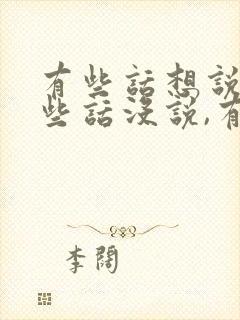 有些話想說
些話沒說,有
李闊